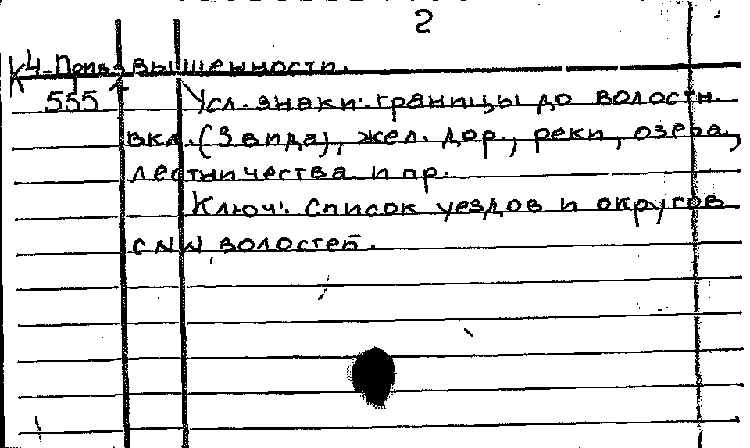 2
К4-Прив вышенности.
555 Усл. знаки: границы до волостн.
вкл. (3 вида), жел. дор., реки, озера,
лесничества и пр.
Ключ: список уездов и округов
с NN волостей.